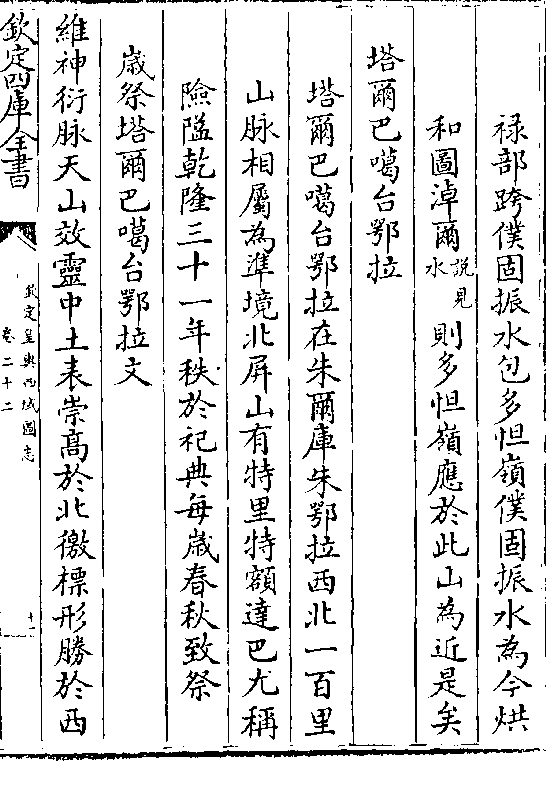 祿部跨僕固振水包多怛嶺僕固振水為今烘
和圖淖爾說見水則多怛嶺應於此山為近是矣
塔爾巴噶台鄂拉
塔爾巴噶台鄂拉在朱爾庫朱鄂拉西北一百里
山脉相屬為準境北屏山有特里特額達巴尤稱
險隘乾隆三十一年秩於祀典每歲春秋致祭
歲祭塔爾巴噶台鄂拉文
維神衍脉天山效靈中土表崇高於北徼標形勝於西
欽定四庫全書
欽定皇輿西域圖志
卷二十二
十一